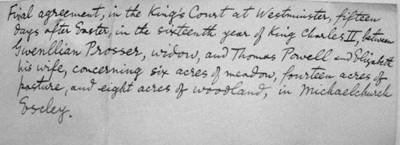 Final agreement, in the King's Court at Westminster, fifteen
days after Easter, in the sixteenth year of King Charles II, between
Gwenllian Prosser, widow, and Thomas Powell and Elizabeth
his wife, concerning six acres of meadow, fourteen acres of
pasture, and eight acres of woodland, in Michaelchurch
Escley.